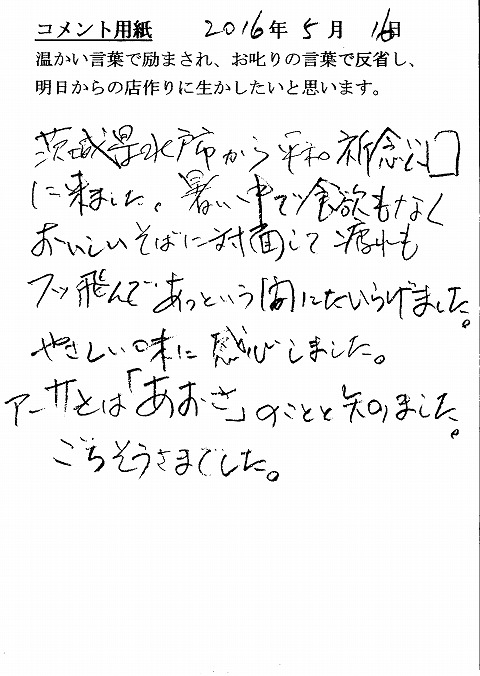 コメント用紙 2016年5月16日
温かい言葉で励まされ、お叱りの言葉で反省し、
明日からの店作りに生かしたいと思います。
茨城県水戸市から平和祈念公園
に来ました。暑い中で食欲もなく
おいしいそばに対面して疲れも
フッ飛んであっという間にたいらげました。
やさしい味に感心しました。
アーサとは「あおさ」のことと知りました。
ごちそうさまでした。